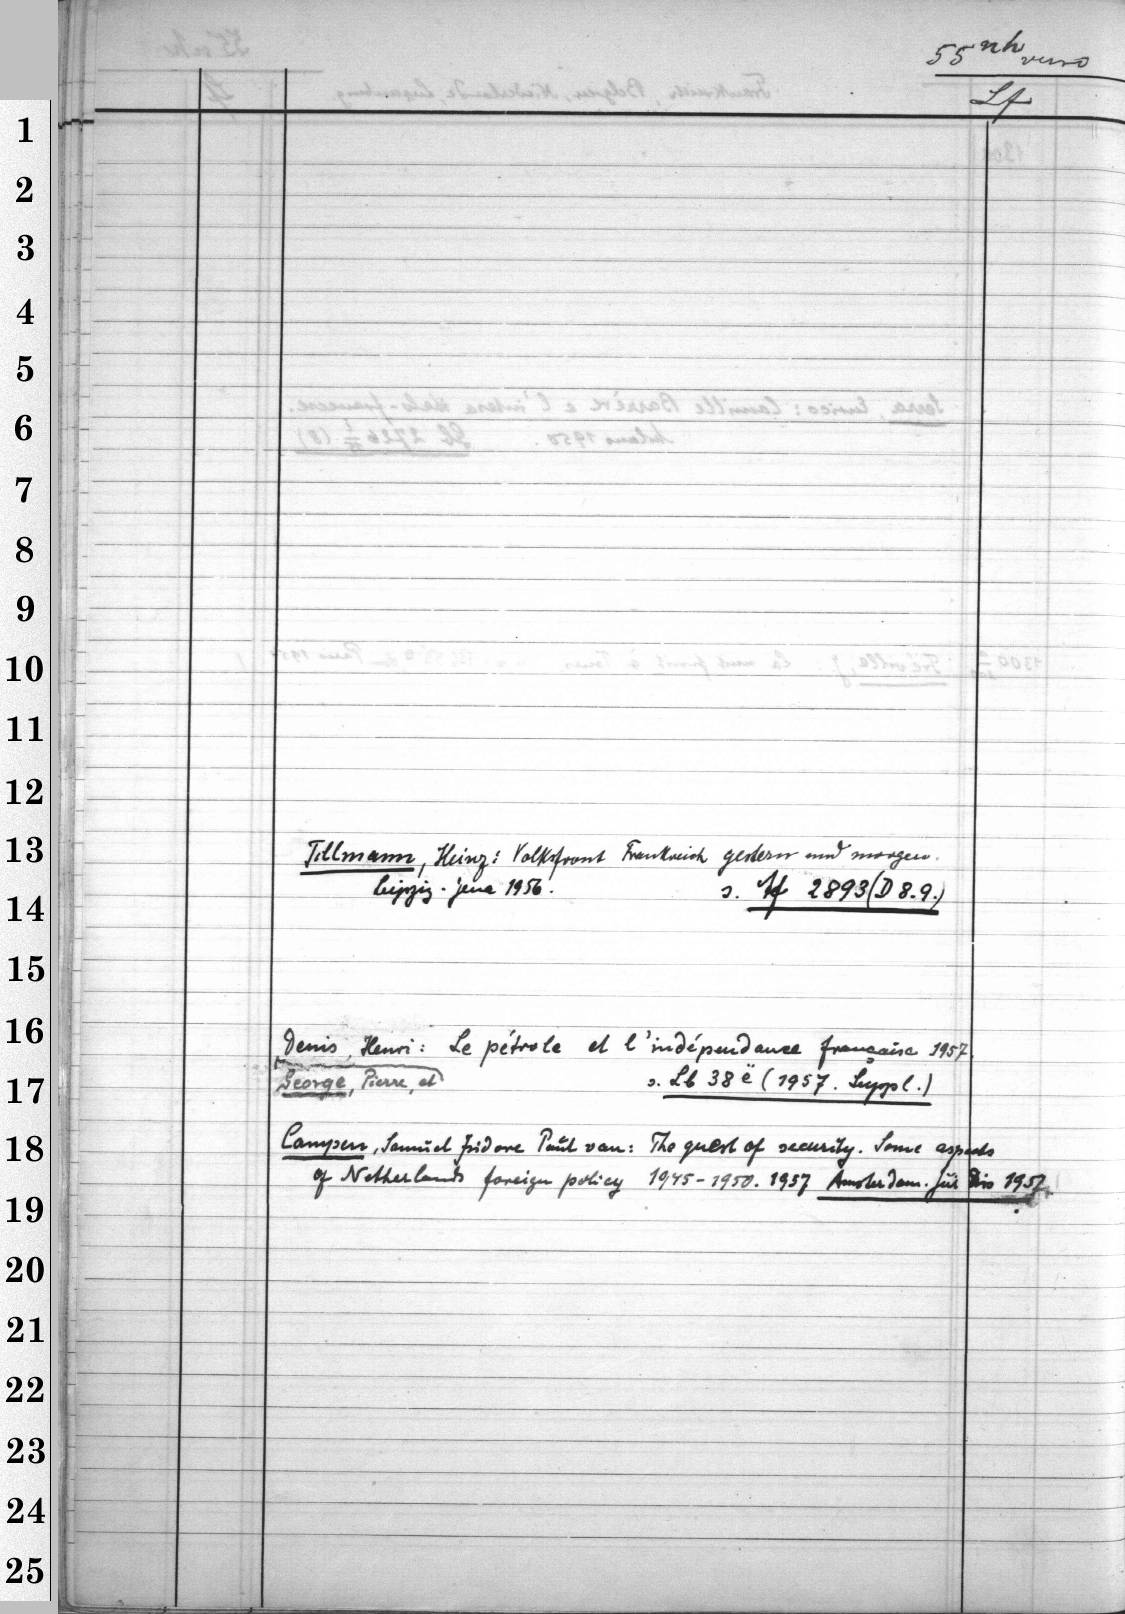 55 nh
verso
Lf
1
2
3
4
5
6
7
8
9
10
11
12
13
Tillmann, Heinz: Volksfront Frankreich gestern und morgen.
Leipzig-Jena 1956. s. Af 2893 (D 8.9.)
14
15
16
Denis, Henri: Le pétrole et l'indépendance française 1957
George, Pierre, et s. Lb 38 ë (1957. Suppl.)
17
18
Campen, Samuel Isidore Paul van: The quest of security. Some aspects
of Netherlands foreign policy 1945-1950. 1957 Amsterdam. jur Diss 1957
19
20
21
22
23
24
25